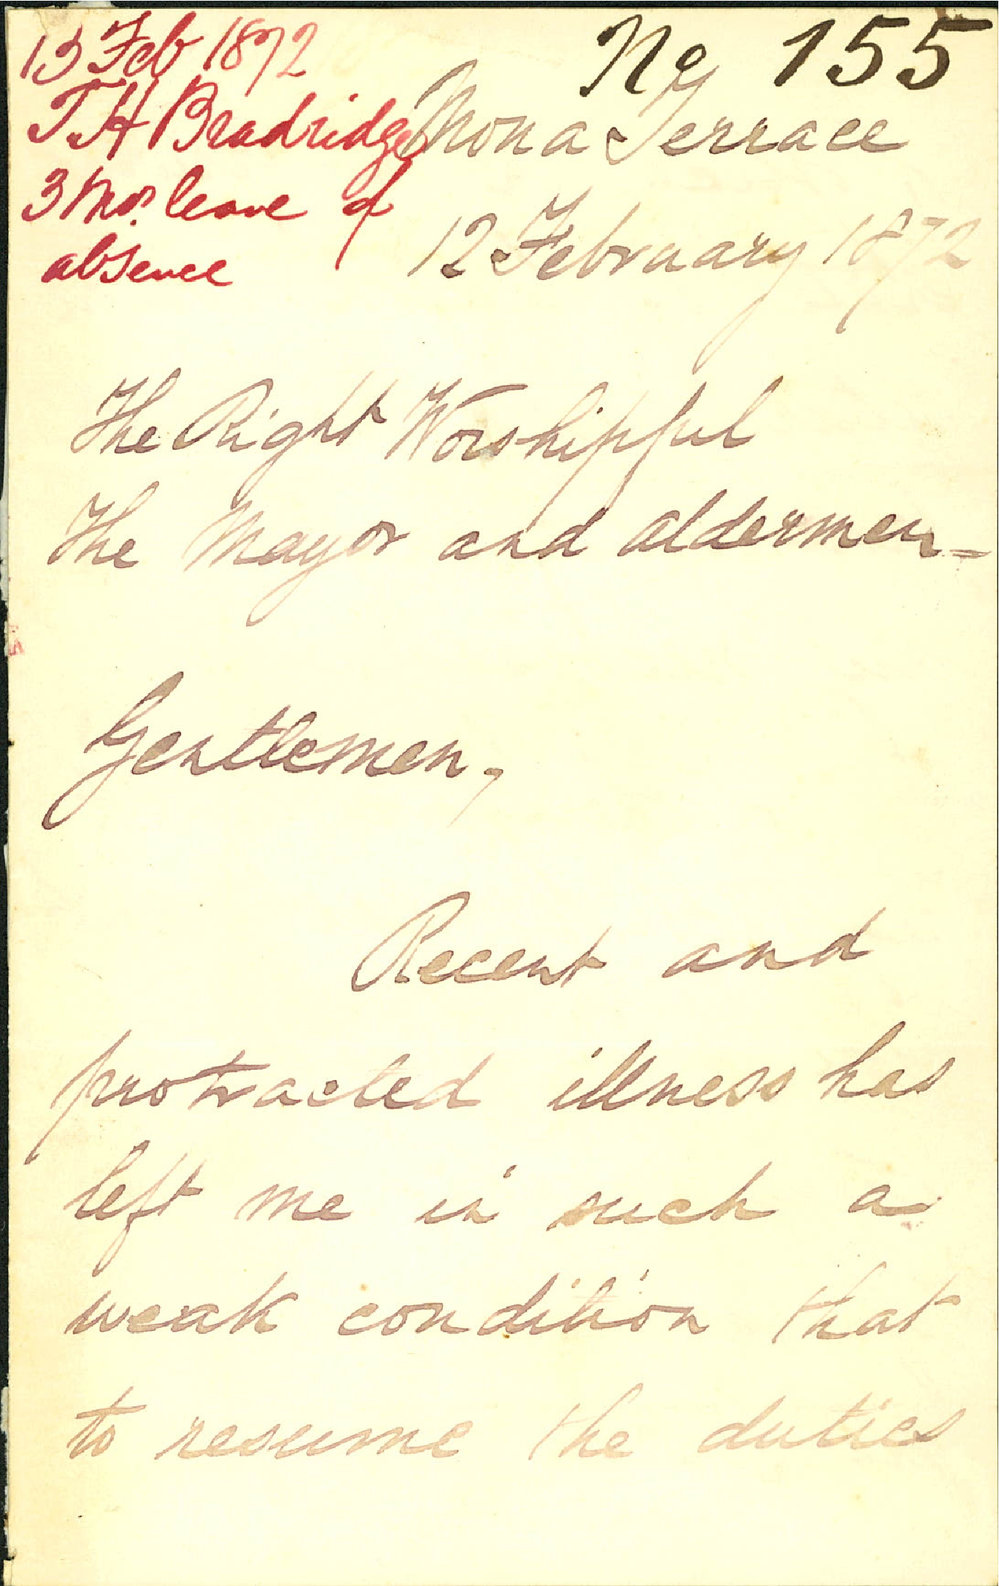 13 Feb 1872
T H Bradridge
3 Mos. leave of
absence
No 155
Mona Terrace
12 February 1872
The Right Worshipful
The Mayor and aldermen =
Gentlemen,
Recent and
protracted illness has
left me in such a
weak condition that
to resume the duties